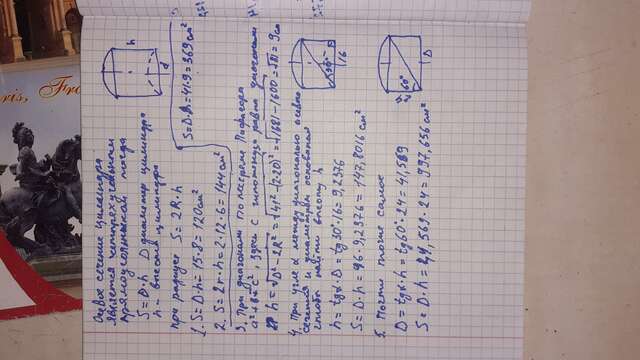 Осевое сечение цилиндра
является четырёхугольным
прямоугольником тогда
S = D · h   D диаметр цилиндра
h - высота цилиндра
При радиусе   S = 2R · h
1. S = D·h = 15·8 = 120 см²
2. S = 2r·h = 2·12·6 = 144 см²
3. При диагонали по теореме Пифагора
a²+b²=c², здесь c гипотенуза равна диагонали
h = √D²-2R² = √41²-(2·20)² = √1681-1600 = √81 = 9 см
S = D·h = 41·9 = 369 см²
4. При угле α между диагональю осевого
сечения и диаметром основания
чтобы найти высоту h
h = tgα·D = tg30°·16 = 9,2376
S = D·h = 16·9,2376 = 147,8016 см²
5. Почти тоже самое
D = tgα·h = tg60°·24 = 41,569
S = D·h = 41,569·24 = 997,656 см²
h
d
30°
16
D
60°
ris, Fr